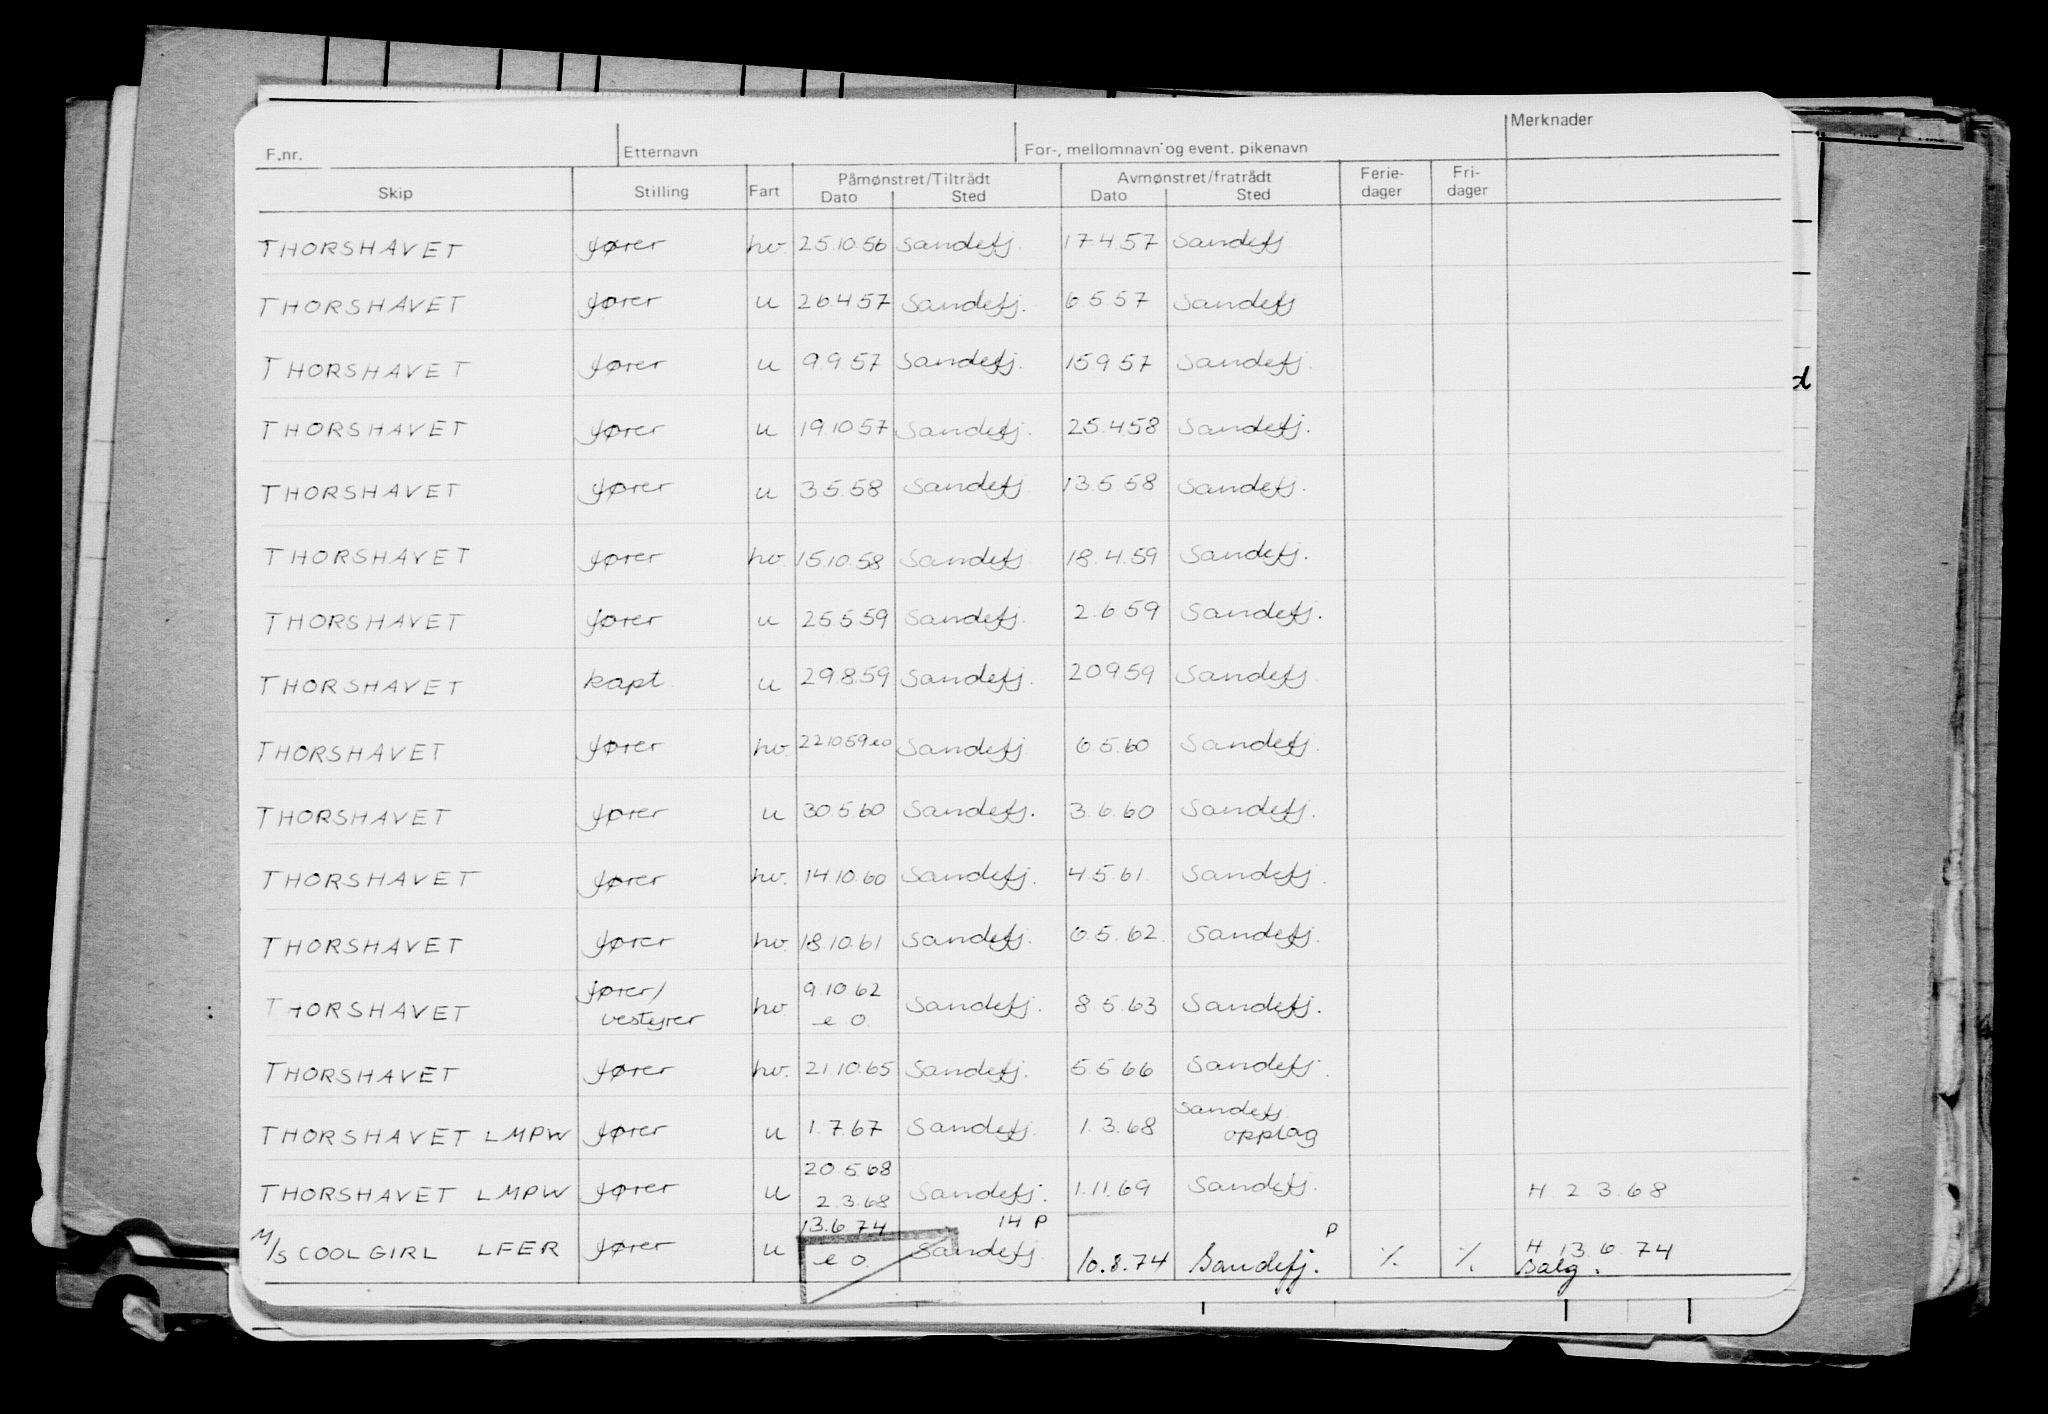 F.nr. Etternavn For-, mellomnavn og event. pikenavn Merknader
Skip Stilling Fart Påmønstret/Tiltrådt Avmønstret/fratrådt Ferie- Fri-
Dato Sted Dato Sted dager dager
THORSHAVET fører hv. 25.10.56 Sandefj. 17.4.57 Sandefj
THORSHAVET fører u 26.4 57 Sandefj. 6.5.57 Sandefj
THORSHAVET fører u 9.9 57 Sandefj. 15.9 57 Sandefj.
THORSHAVET fører u 19.10 57 Sandefj. 25.4.58 Sandefj.
THORSHAVET fører u 3.5.58 Sandefj 13.5 58 Sandefj.
THORSHAVET fører hv. 15.10.58 Sandefj 18.4.59 Sandefj.
THORSHAVET fører u 25.5.59 Sandefj. 2.6 59 Sandefj.
THORSHAVET kapt. u 29.8.59 Sandefj. 20 9 59 Sandefj.
THORSHAVET fører hv. 22 10 59 eo Sandefj 6.5.60 Sandefj.
THORSHAVET fører u 30.5.60 Sandefj. 3.6.60 Sandefj.
THORSHAVET fører hv. 14.10.60 Sandefj. 4.5.61 Sandefj.
THORSHAVET fører hv. 18.10.61 Sandefj. 6.5.62. Sandefj.
THORSHAVET fører/ hv. 9.10.62 Sandefj. 8.5.63 Sandefj.
vestyrer e o.
THORSHAVET fører hv. 21.10.65 Sandefj. 5.5 66 Sandefj.
THORSHAVET LMPW fører u 1.7.67 Sandefj. 1.3.68 Sandefj.
opplag
20.5.68
THORSHAVET LMPW fører u 2.3.68 Sandefj. 1.11.69 Sandefj. H 2.3.68
13.6.74 14 P P
M/S COOL GIRL LFER fører u e o. Sandefj. 10.8.74 Sandefj. ٪ ٪ H 13.6.74
Salg.
d